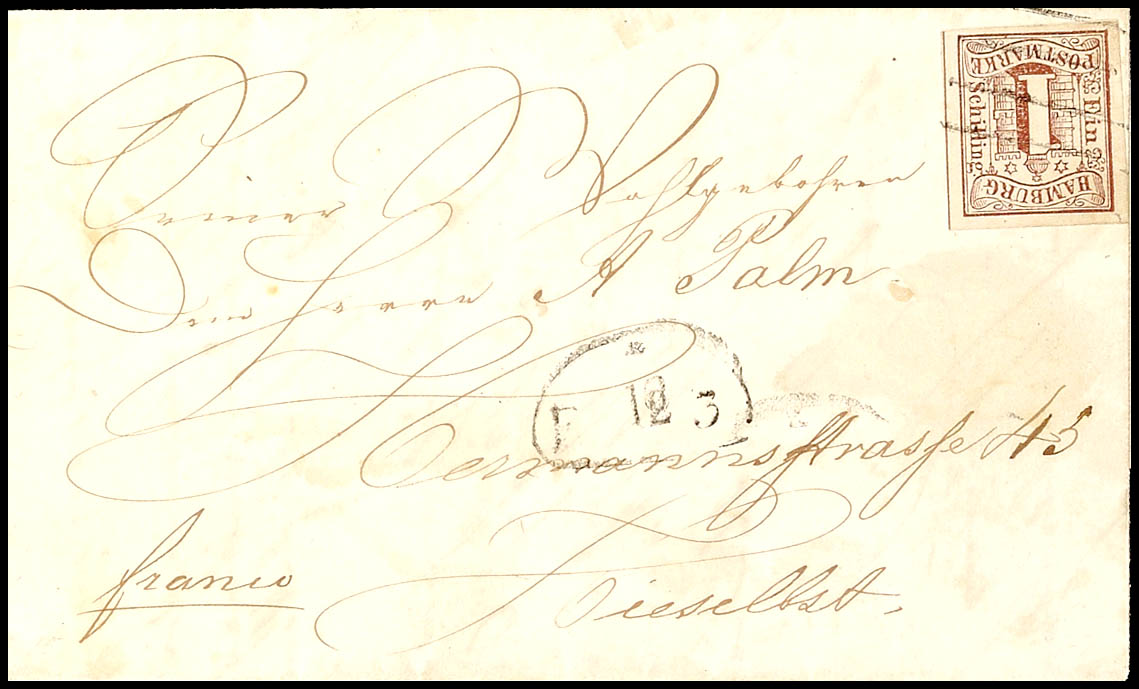 POSTMARKE
Ein
Schilling
HAMBURG
1
Seiner Wohlgebohren
Dem Herrn A Palm
F 10 3
Hermannsstrasse 45
franco
Hieselbst.